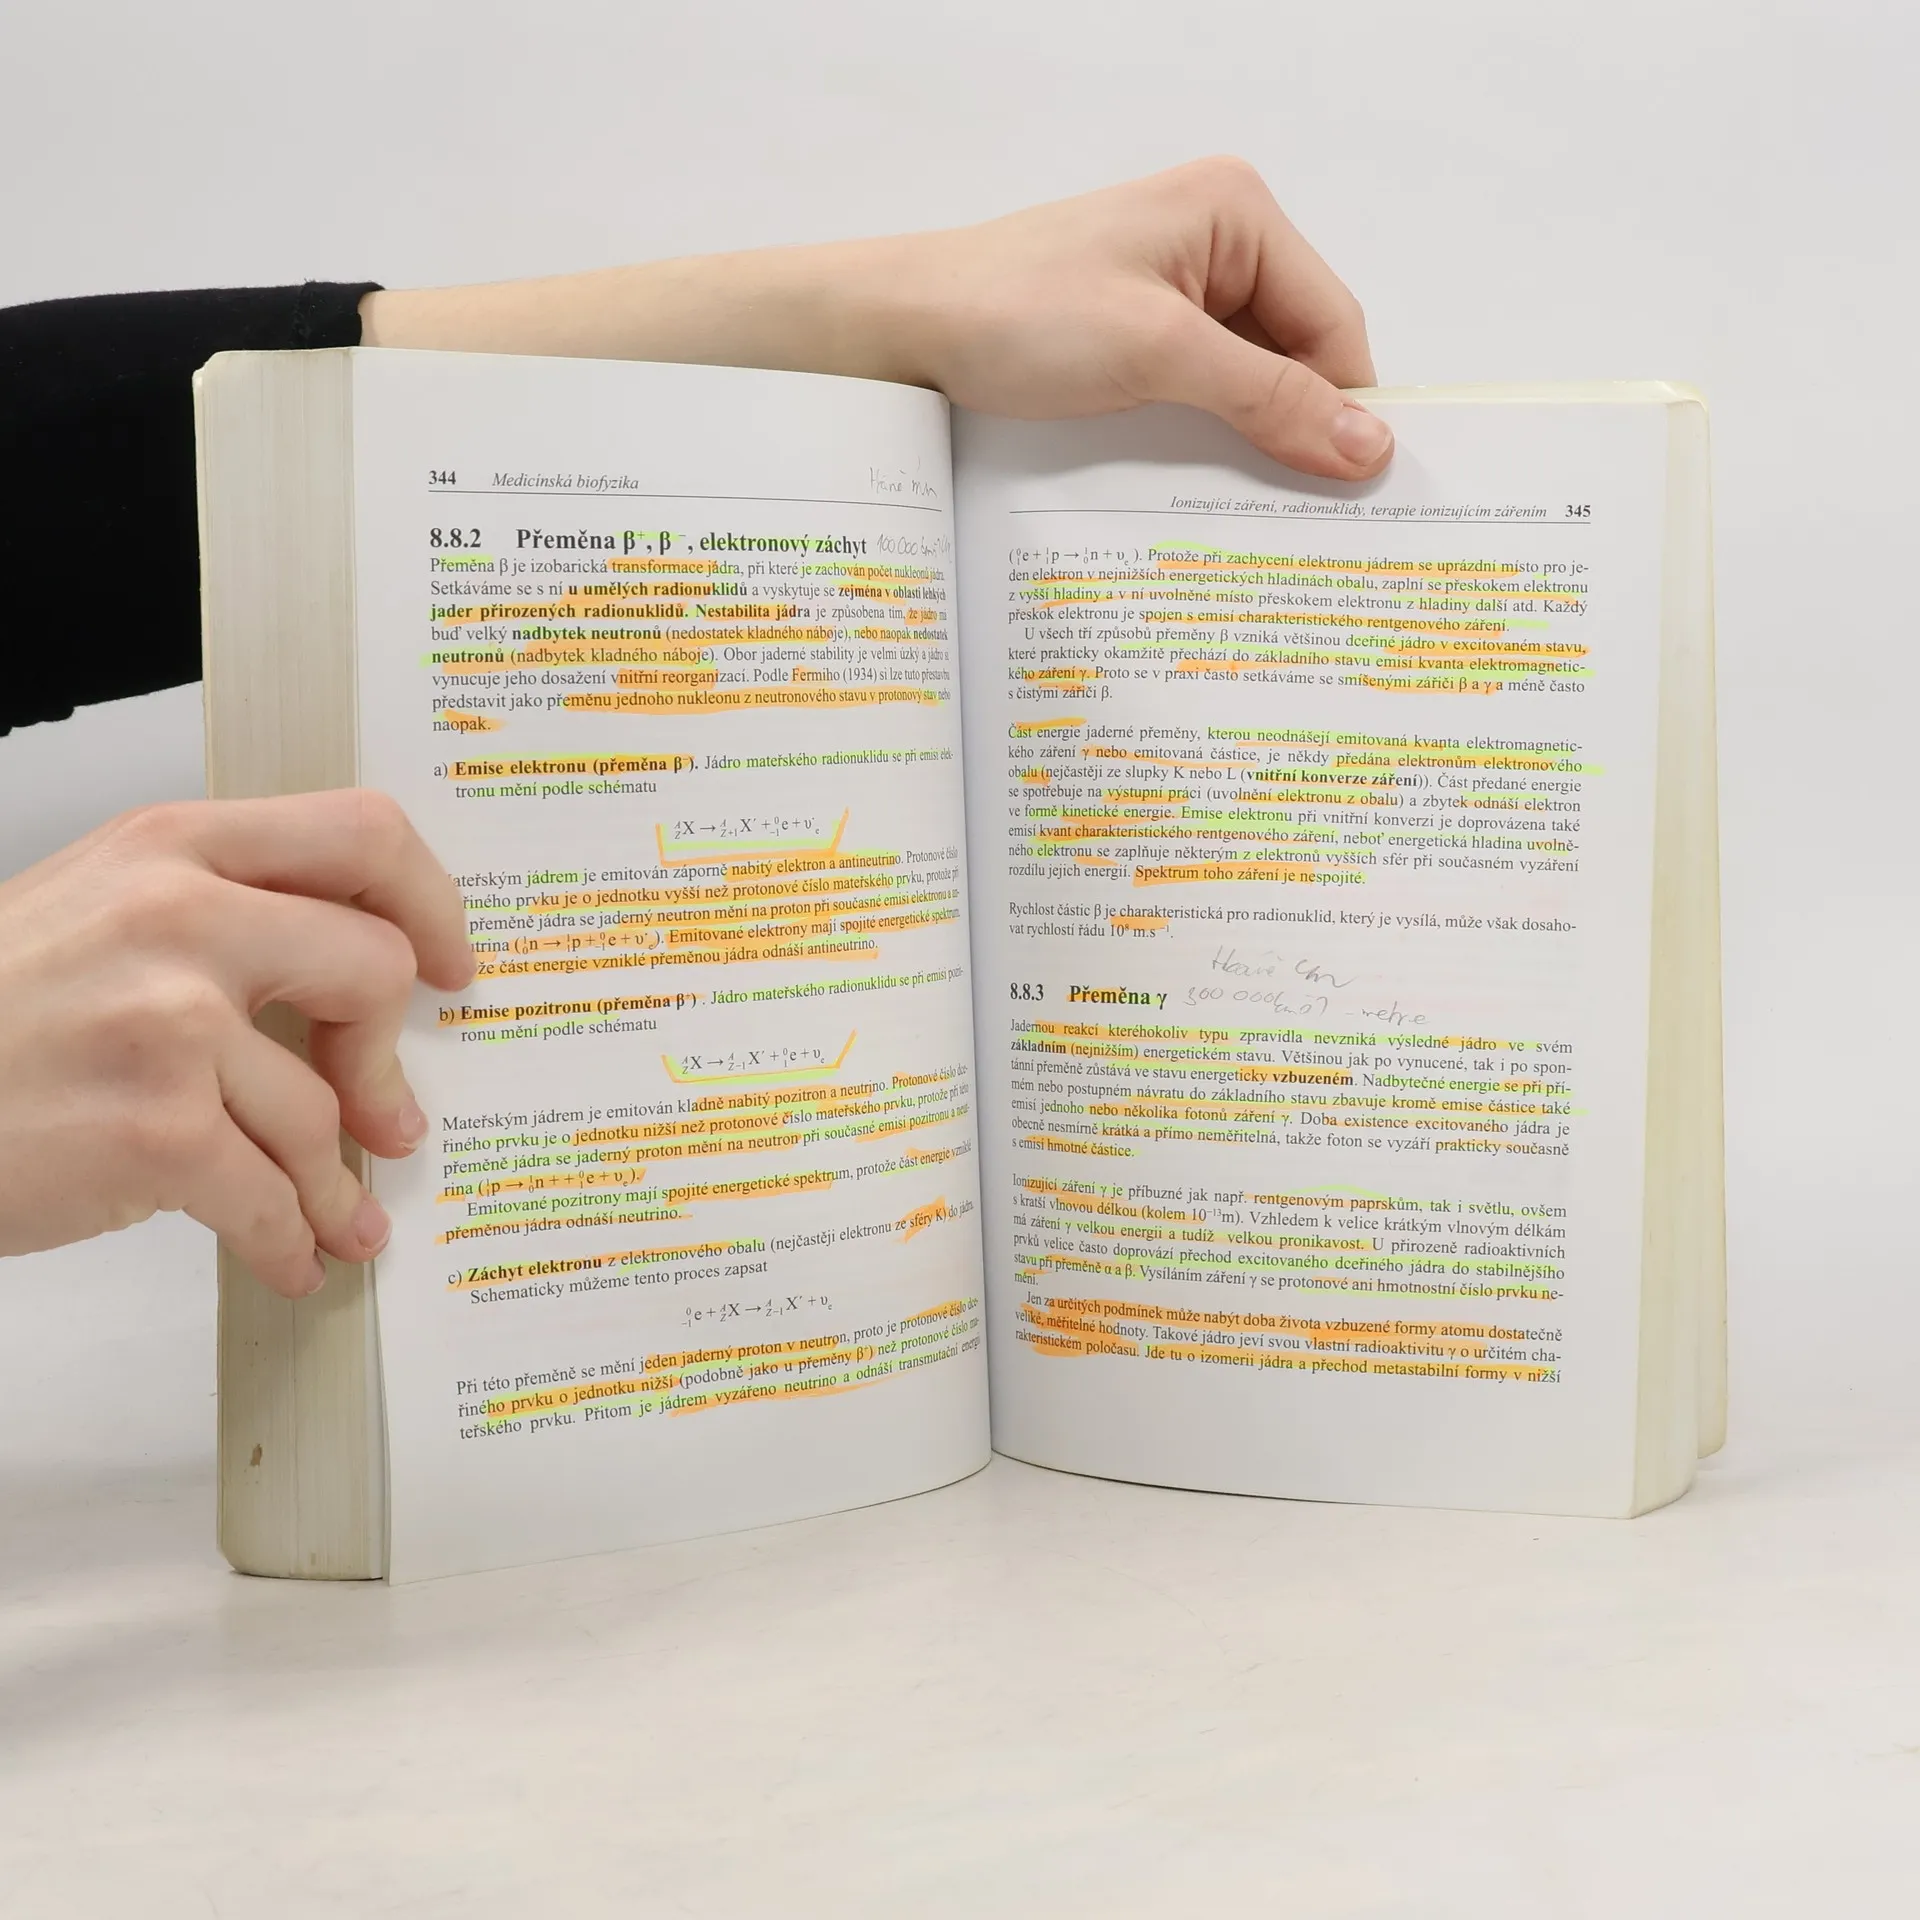 344 Medicínská biofyzika
8.8.2 Přeměna β⁺, β⁻, elektronový záchyt 100 000
Přeměna β je izobarická transformace jádra, při které je zachován počet nukleonů jádra.
Setkáváme se s ní u umělých radionuklidů a vyskytuje se zejména v oblasti lehkých
jader přirozených radionuklidů. Nestabilita jádra je způsobena tím, že jádro má
buď velký nadbytek neutronů (nedostatek kladného náboje), nebo naopak nedostatek
neutronů (nadbytek kladného náboje). Obor jaderné stability je velmi úzký a jádro si
vynucuje jeho dosažení vnitřní reorganizací. Podle Fermiho (1934) si lze tuto přestavbu
představit jako přeměnu jednoho nukleonu z neutronového stavu v protonový stav nebo
naopak.
a) Emise elektronu (přeměna β⁻). Jádro mateřského radionuklidu se při emisi elek-
tronu mění podle schématu
ᴬ_Z X → ᴬ_Z+1 X´ + ⁰_-1 e + υ´_e
ateřským jádrem je emitován záporně nabitý elektron a antineutrino. Protonové číslo
řiného prvku je o jednotku vyšší než protonové číslo mateřského prvku, protože při
přeměně jádra se jaderný neutron mění na proton při současné emisi elektronu a an-
trina (¹_0 n → ¹_1 p + ⁰_-1 e + υ´_e). Emitované elektrony mají spojité energetické spektrum,
že část energie vzniklé přeměnou jádra odnáší antineutrino.
b) Emise pozitronu (přeměna β⁺). Jádro mateřského radionuklidu se při emisi pozit-
ronu mění podle schématu
ᴬ_Z X → ᴬ_Z-1 X´ + ⁰_1 e + υ_e
Mateřským jádrem je emitován kladně nabitý pozitron a neutrino. Protonové číslo dce-
řiného prvku je o jednotku nižší než protonové číslo mateřského prvku, protože při této
přeměně jádra se jaderný proton mění na neutron při současné emisi pozitronu a neut-
rina (¹_1 p → ¹_0 n + + ⁰_1 e + υ_e).
Emitované pozitrony mají spojité energetické spektrum, protože část energie vzniklé
přeměnou jádra odnáší neutrino.
c) Záchyt elektronu z elektronového obalu (nejčastěji elektronu ze sféry K) do jádra.
Schematicky můžeme tento proces zapsat
⁰_-1 e + ᴬ_Z X → ᴬ_Z-1 X´ + υ_e
Při této přeměně se mění jeden jaderný proton v neutron, proto je protonové číslo dce-
řiného prvku o jednotku nižší (podobně jako u přeměny β⁺) než protonové číslo ma-
teřského prvku. Přitom je jádrem vyzářeno neutrino a odnáší transmutační energii
Ionizující záření, radionuklidy, terapie ionizujícím zářením 345
(⁰_1 e + ¹_1 p → ¹_0 n + υ_e). Protože při zachycení elektronu jádrem se uprázdní místo pro je-
den elektron v nejnižších energetických hladinách obalu, zaplní se přeskokem elektronu
z vyšší hladiny a v ní uvolněné místo přeskokem elektronu z hladiny další atd. Každý
přeskok elektronu je spojen s emisí charakteristického rentgenového záření.
U všech tří způsobů přeměny β vzniká většinou dceřiné jádro v excitovaném stavu,
které prakticky okamžitě přechází do základního stavu emisí kvanta elektromagnetic-
kého záření γ. Proto se v praxi často setkáváme se smíšenými zářiči β a γ a méně často
s čistými zářiči β.
Část energie jaderné přeměny, kterou neodnášejí emitovaná kvanta elektromagnetic-
kého záření γ nebo emitovaná částice, je někdy předána elektronům elektronového
obalu (nejčastěji ze slupky K nebo L (vnitřní konverze záření)). Část předané energie
se spotřebuje na výstupní práci (uvolnění elektronu z obalu) a zbytek odnáší elektron
ve formě kinetické energie. Emise elektronu při vnitřní konverzi je doprovázena také
emisí kvant charakteristického rentgenového záření, neboť energetická hladina uvolně-
ného elektronu se zaplňuje některým z elektronů vyšších sfér při současném vyzáření
rozdílu jejich energií. Spektrum toho záření je nespojité.
Rychlost částic β je charakteristická pro radionuklid, který je vysílá, může však dosaho-
vat rychlostí řádu 10⁸ m.s⁻¹.
8.8.3 Přeměna γ 300 000
Jadernou reakcí kteréhokoliv typu zpravidla nevzniká výsledné jádro ve svém
základním (nejnižším) energetickém stavu. Většinou jak po vynucené, tak i po spon-
tánní přeměně zůstává ve stavu energeticky vzbuzeném. Nadbytečné energie se při pří-
mém nebo postupném návratu do základního stavu zbavuje kromě emise částice také
emisí jednoho nebo několika fotonů záření γ. Doba existence excitovaného jádra je
obecně nesmírně krátká a přímo neměřitelná, takže foton se vyzáří prakticky současně
s emisí hmotné částice.
Ionizující záření γ je příbuzné jak např. rentgenovým paprskům, tak i světlu, ovšem
s kratší vlnovou délkou (kolem 10⁻¹³m). Vzhledem k velice krátkým vlnovým délkám
má záření γ velkou energii a tudíž velkou pronikavost. U přirozeně radioaktivních
prvků velice často doprovází přechod excitovaného dceřiného jádra do stabilnějšího
stavu při přeměně α a β. Vysíláním záření γ se protonové ani hmotnostní číslo prvku ne-
mění.
Jen za určitých podmínek může nabýt doba života vzbuzené formy atomu dostatečně
veliké, měřitelné hodnoty. Takové jádro jeví svou vlastní radioaktivitu γ o určitém cha-
rakteristickém poločasu. Jde tu o izomerii jádra a přechod metastabilní formy v nižší